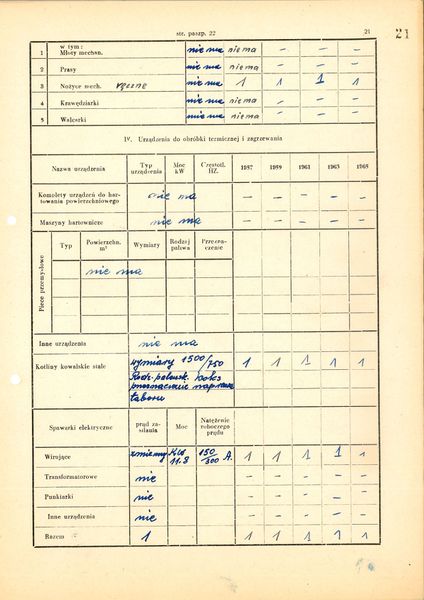 str. paszp. 22
21
21
w tym :
1 Młoty mechan. nie ma nie ma — — — —
2 Prasy nie ma nie ma — — — —
3 Nożyce mech. ręczne nie ma 1 1 1 1
4 Krawędziarki nie ma nie ma — — — —
5 Walcarki nie ma nie ma — — — —
IV. Urządzenia do obróbki termicznej i zagrzewania
Nazwa urządzenia Typ urządzenia Moc kW Częstotl. HZ. 1957 1959 1961 1963 1965
Komplety urządzeń do hartowania powierzchniowego nie ma — — — — —
Maszyny hartownicze nie ma — — — — —
Piece przemysłowe
Typ Powierzchn. m² Wymiary Rodzaj paliwa Przeznaczenie
nie ma
Inne urządzenia nie ma
Kotliny kowalskie stałe wymiary 1500/750 1 1 1 1 1
Rodz. palewsk. koks
przeznaczenie naprawa
taboru
Spawarki elektryczne prąd zasilania Moc Natężenie roboczego prądu
Wirujące zmienny KW 11.8 150/300 A. 1 1 1 1 1
Transformatorowe nie — — — — —
Punktarki nie — — — — —
Inne urządzenia nie — — — — —
Razem 1 1 1 1 1 1